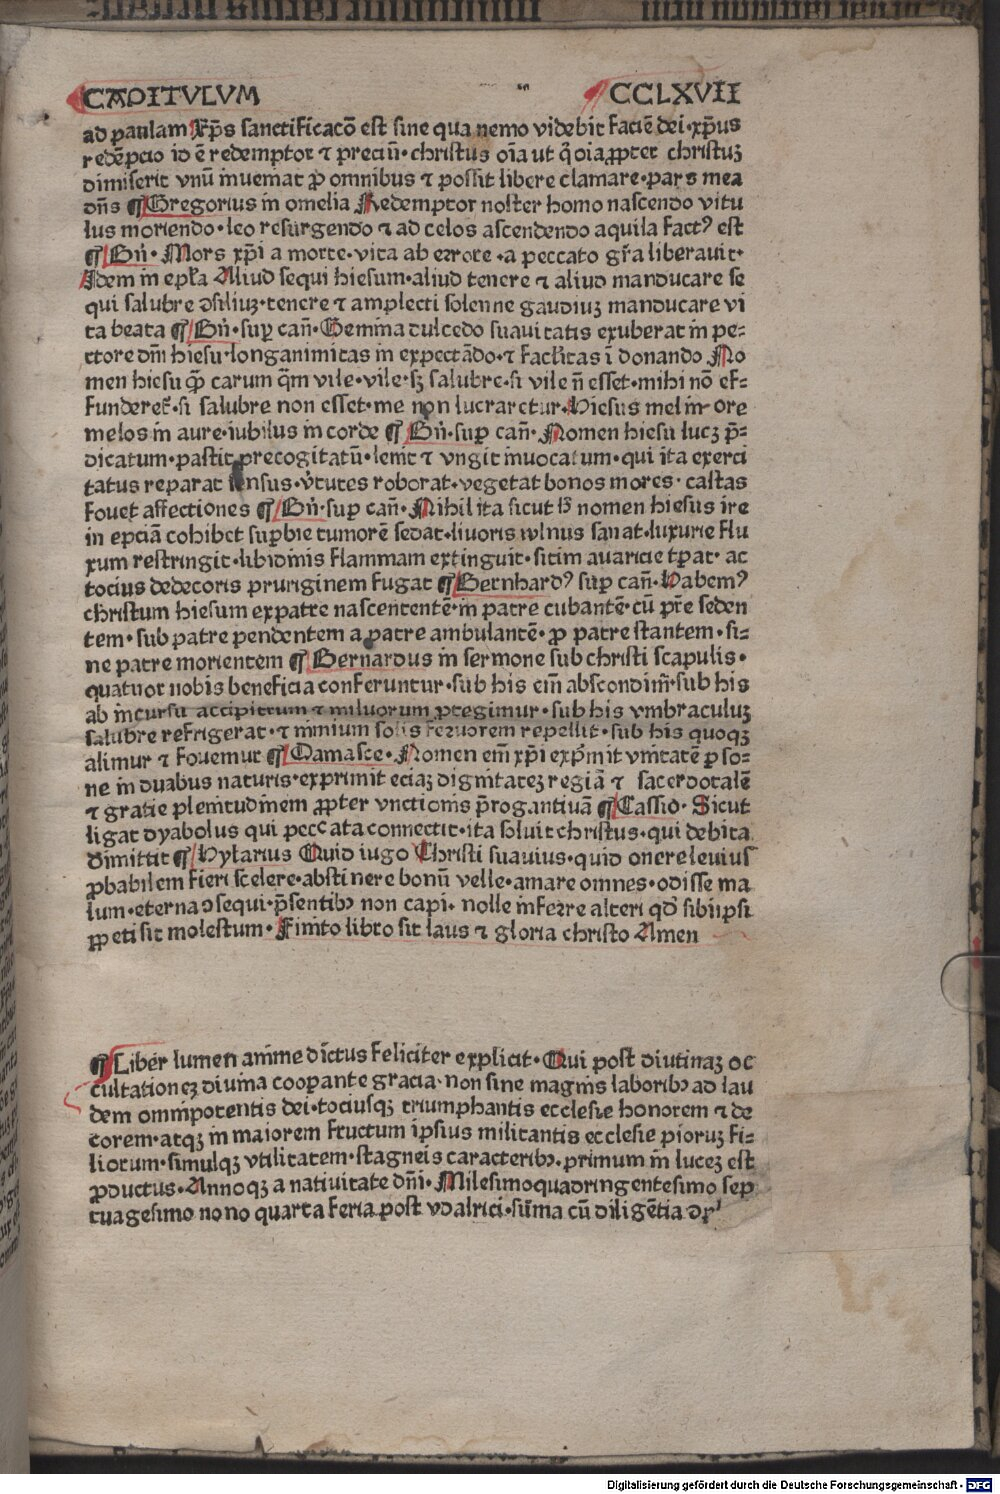 CAPITVLVM CCLXVII
ad paulam Xp̄s sanctificacō est sine qua nemo videbit faciē dei·xp̄us
redēpcio id ē redemptor ⁊ preciū·christus oīa ut q̄ oīa ꝓpter christuꝫ
dimiserit vnū inuemat ꝓ omnibus ⁊ possit libere clamare·pars mea
dn̄s ¶ Gregorius in omelia Redemptor noster homo nascendo vitu
lus moriendo·leo resurgendo ⁊ ad celos ascendendo aquila factꝰ est
¶ Bn̄· Mors xp̄i a morte·vita ab errore·a peccato gr̄a liberauit·
Idem in epl̄a Aliud sequi hiesum·aliud tenere ⁊ aliud manducare se
qui salubre ꝯsiliuꝫ·tenere ⁊ amplecti solenne gaudiuꝫ manducare vi
ta beata ¶ Bn̄·suꝑ can̄·Gemina dulcedo suauitatis exuberat in pe⸗
ctore dn̄i hiesu·longanimitas in expectādo·⁊ facilitas ī donando No
men hiesu q̄ꝫ carum q̄m vile·vile·sꝫ salubre·si vile n̄ esset·mihi nō ef⸗
funderet̄·si salubre non esset·me non lucraretur·Hiesus mel in ore
melos in aure·iubilus in corde ¶ Bn̄·suꝑ can̄·Nomen hiesu lucꝫ p̄⸗
dicatum·pascit precogitatū·lenit ⁊ vngit inuocatum·qui ita exerci
tatus reparat sensus·v̄tutes roborat·vegetat bonos mores·castas
fouet affectiones ¶ Bn̄·suꝑ can̄·Nihil ita sicut h̄ nomen hiesus ire
in epciā cohibet suꝑbie tumorē sedat·liuoris wlnus sanat·luxurie flu
xum restringit·libidinis flammam extinguit·sitim auaricie tꝑat·ac
tocius dedecoris pruriginem fugat ¶ Bernhardꝰ suꝑ can̄·Habemꝰ
christum hiesum expatre nascententē·in patre cubantē·cū pr̄e seden
tem·sub patre pendentem a patre ambulantē·ꝓ patre stantem·si⸗
ne patre morientem ¶ Bernardus in sermone sub christi scapulis·
quatuor nobis beneficia conferuntur·sub his eīm abscondim̄·sub his
ab incursu accipitrum ⁊ miluorum ꝓtegimur·sub his vmbraculuꝫ
salubre refrigerat·⁊ nimium solis feruorem repellit·sub his quoqꝫ
alimur ⁊ fouemur ¶ Damasce·Nomen eīm xp̄i exp̄mit vnitatē ꝑso⸗
ne in duabus naturis·exprimit eciaꝫ dignitateꝫ regiā ⁊ sacerdotalē
⁊ gratie plenitudinem ꝓpter vnctionis p̄rogantiuā ¶ Cassio· Sicut
ligat dyabolus qui peccata connectit·ita soluit christus·qui debita
dimittit ¶ Hylarius Quid iugo Christi suauius·quid onere leuius
ꝓbabilem fieri scelere·abstinere bonū velle·amare omnes·odisse ma
lum·eterna ꝯsequi·p̄sentibꝫ non capi·nolle inferre alteri qd̄ sibi ipsi
ꝑpeti sit molestum·Finito libro sit laus ⁊ gloria christo Amen
¶ Liber lumen anime dictus feliciter explicit·Qui post diutinaꝫ oc
cultationeꝫ diuina cooꝑante gracia·non sine magnis laboribꝫ ad lau
dem omnipotentis dei·tociusqꝫ triumphantis ecclesie honorem ⁊ de
corem·atqꝫ in maiorem fructum ipsius militantis ecclesie pioruꝫ fi⸗
liorum·simulqꝫ vtilitatem·stagneis caracteribꝫ·primum in luceꝫ est
ꝓductus·Annoqꝫ a natiuitate dn̄i·Milesimoquadringentesimo sep
tuagesimo nono quarta feria post vdalrici·sūma cū diligētia
Digitalisierung gefördert durch die Deutsche Forschungsgemeinschaft - DFG